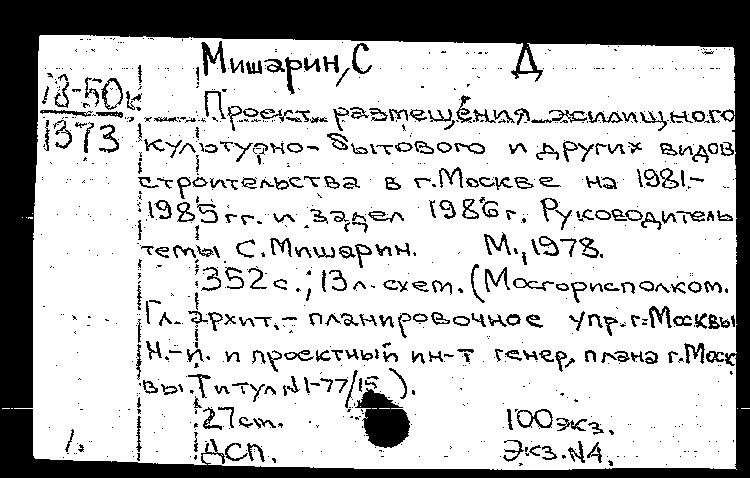 Мишарин, С Д
78-50к
1373
Проект размещения жилищного
культурно-бытового и других видов
строительства в г. Москве на 1981-
1985 гг. и задел 1986 г. Руководитель
темы С. Мишарин. М., 1978.
352 с.; 13 л. схем. (Мосгорисполком.
Гл. архит.- планировочное упр. г. Москвы
Н.-и. и проектный ин-т генер, плана г. Моск
вы. Титул N1-77/15).
27 см. 100 экз.
1. ДСП. Экз. N4.